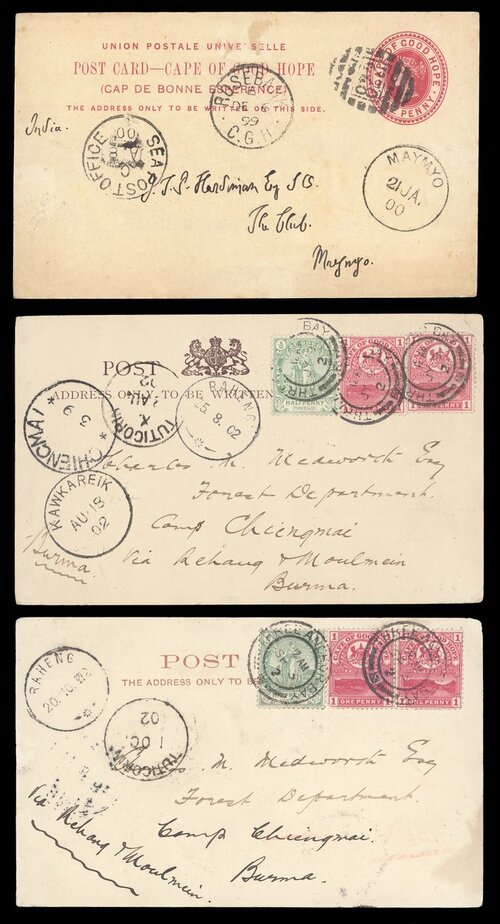 UNION POSTALE UNIVERSELLE
POST CARD—CAPE OF GOOD HOPE
(CAP DE BONNE ESPERANCE)
THE ADDRESS ONLY TO BE WRITTEN ON THIS SIDE.
OF GOOD HOPE
PENNY
ROSEB
DE 6
99
C.G.H.
India.
SEA POST OFFICE
00
MAYMYO
21 JA.
00
J. T. P. Hardiman Esq I.C.S.
The Club.
Maymyo.
POST
ADDRESS ONLY TO BE WRITTEN
HALF PENNY
POSTAGE
1 1
ONE PENNY
BAY
TUTICORIN
AU
02
RAHENG
5.8.02
CHIENGMAI
3 9
KAWKAREIK
AU-18
02
Charles M. Medworth Esq
Forest Department.
Camp Chiengmai
Via Rehang & Moulmein
Burma.
Burma.
POST
THE ADDRESS ONLY TO BE
THREE ANCHOR BAY
CAPE OF GOOD HOPE
1 1
ONE PENNY ONE PENNY
RAHENG
20.10.
TUTICORIN
1 OC
02
M. Medworth Esq
Forest Department.
Camp Chiengmai.
Burma.
Via Rehang & Moulmein.